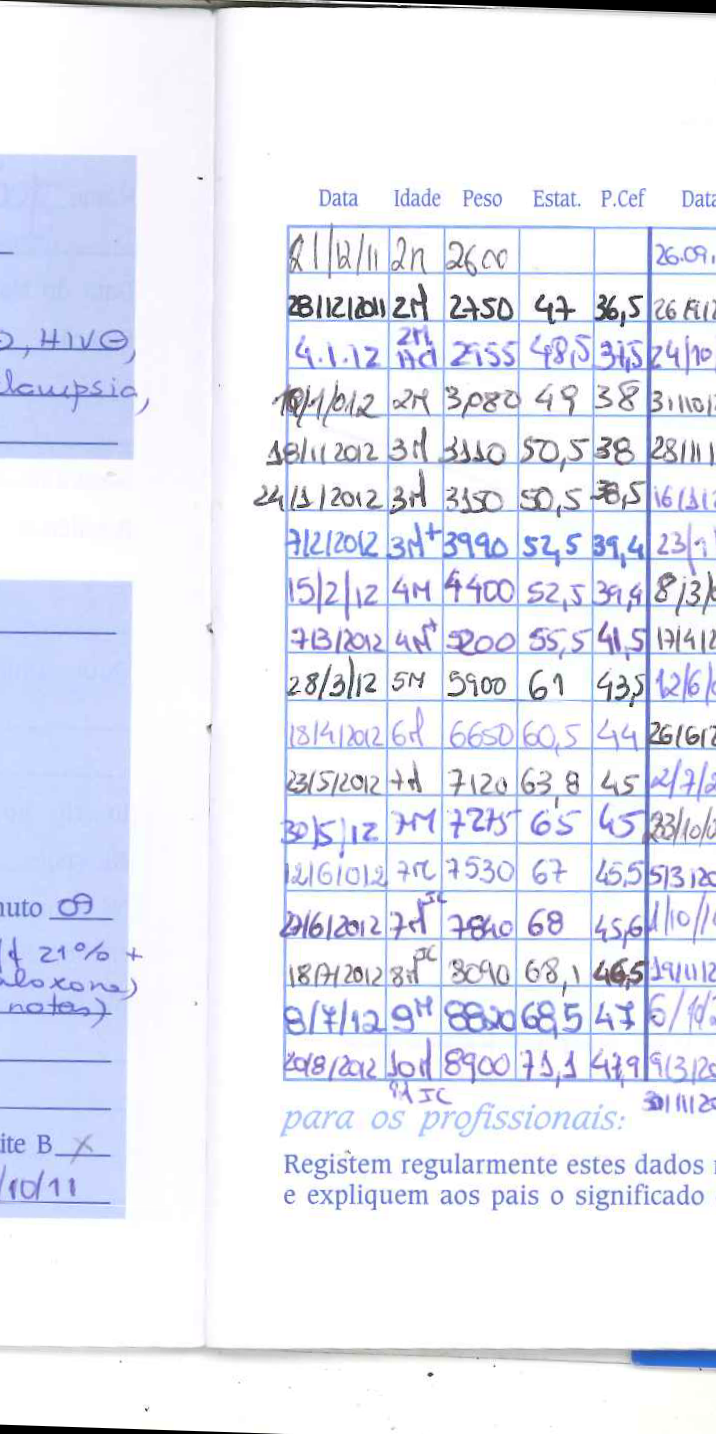 , HIV⊖,
lampsia,
nuto 09
21% +
aloxona)
notas)
ite B X
/10/11
Data Idade Peso Estat. P.Cef Data
21/12/11 2M 2600 26.09.
28/12/2011 2M 2750 47 36,5
4.1.12 2M 2955 48,5 37,5 24/10
/1/012 2M 3080 49 38 31/10/
18/1/2012 3M 3110 50,5 38 28/11/
24/1/2012 3M 3150 50,5 38,5 16/1/
7/2/2012 3M+ 3990 52,5 39,4 23/
15/2/12 4M 4400 52,5 39,4 8/3/
7/3/2012 4M+ 5200 55,5 41,5 17/4/2
28/3/12 5M 5900 61 43,5 12/6/
18/4/2012 6M 6650 60,5 44 26/6/2
23/5/2012 7M 7120 63,8 45 2/7/2
30/5/12 7M 7275 65 45 23/10/
12/6/012 7M 7530 67 45,5 5/3/20
27/6/2012 7M IC 7840 68 45,6 1/10/1
18/7/2012 8M IC 8090 68,1 46,5 19/11/2
8/7/12 9M 8820 68,5 47 6/10/2
20/8/2012 10M 8900 71,1 47,9 9/3/20
IC 30/11/20
para os profissionais:
Registem regularmente estes dados
e expliquem aos pais o significado